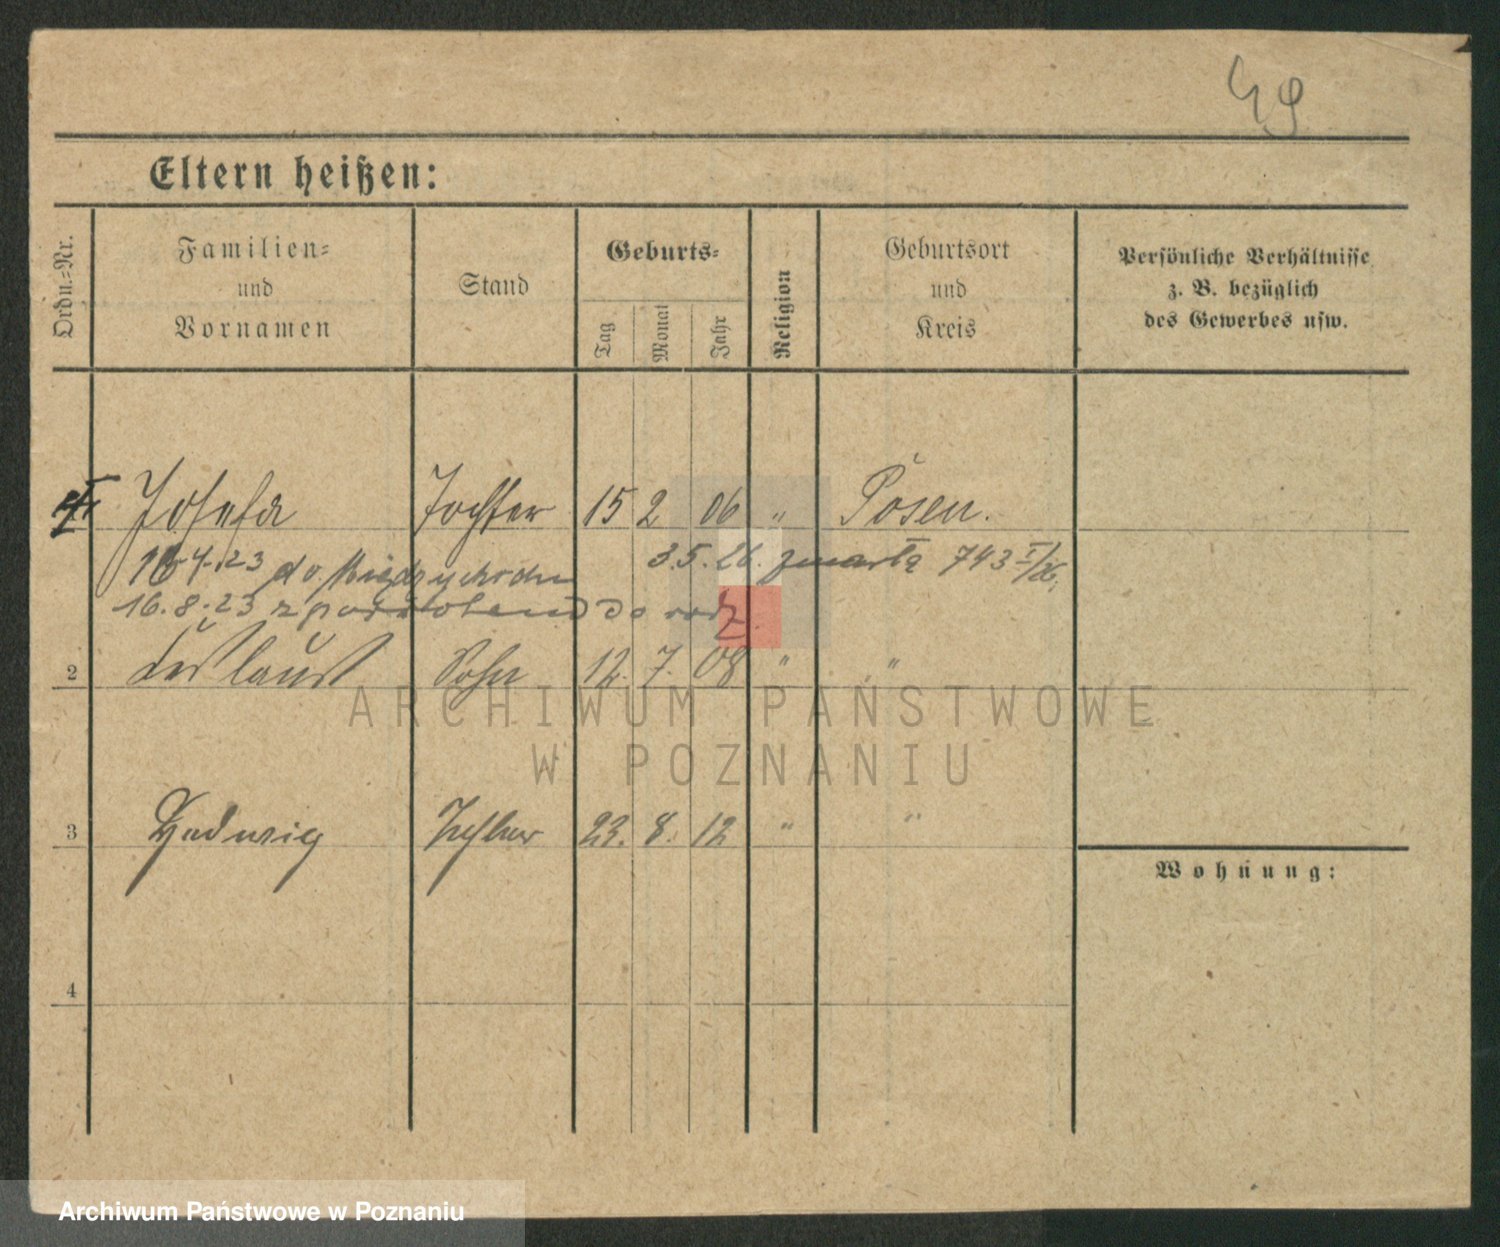 49
Eltern heißen:
Ordn.-Nr.
Familien-
und
Vornamen
Stand
Geburts-
Tag
Monat
Jahr
Religion
Geburtsort
und
Kreis
Persönliche Verhältnisse
z. B. bezüglich
des Gewerbes usw.
Josefa Tochter 15 2 06 " Posen.
16 4.23 do Międzychodu 3.5.26. zmarła 743 I/26.
16.8.23 z powrotem do rodz.
2 Sohn 12. 7. 08 " "
ARCHIWUM PAŃSTWOWE
W POZNANIU
3 Hedwig Tochter 23. 8. 12 " "
Wohnung:
4
Archiwum Państwowe w Poznaniu